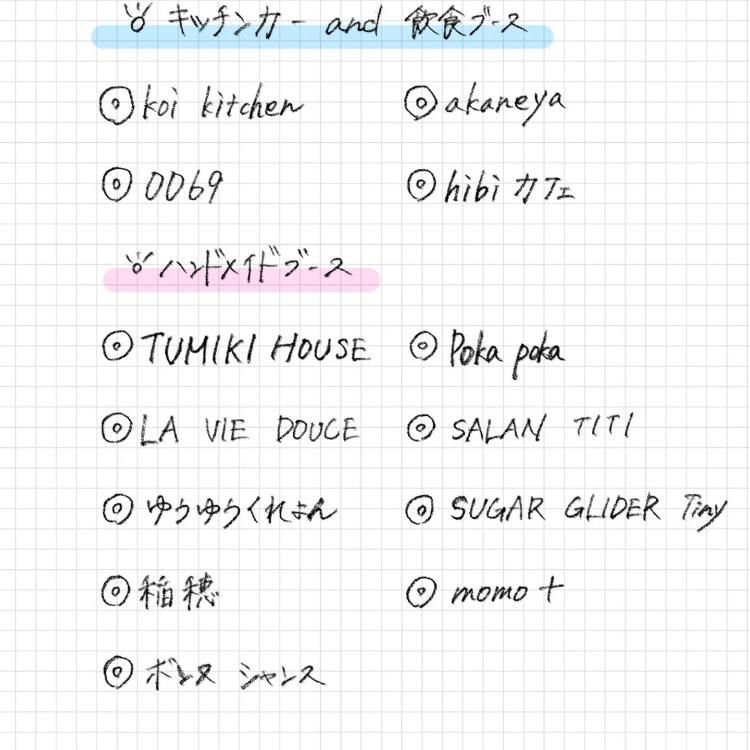 キッチンカー and 飲食ブース
◎koi kitchen ◎akaneya
◎0069 ◎hibiカフェ
ハンドメイドブース
◎TUMIKI HOUSE ◎Poka poka
◎LA VIE DOUCE ◎SALAN TITI
◎ゆうゆうくれよん ◎SUGAR GLIDER Tiny
◎稲穂 ◎momo+
◎ボンヌ シャンス